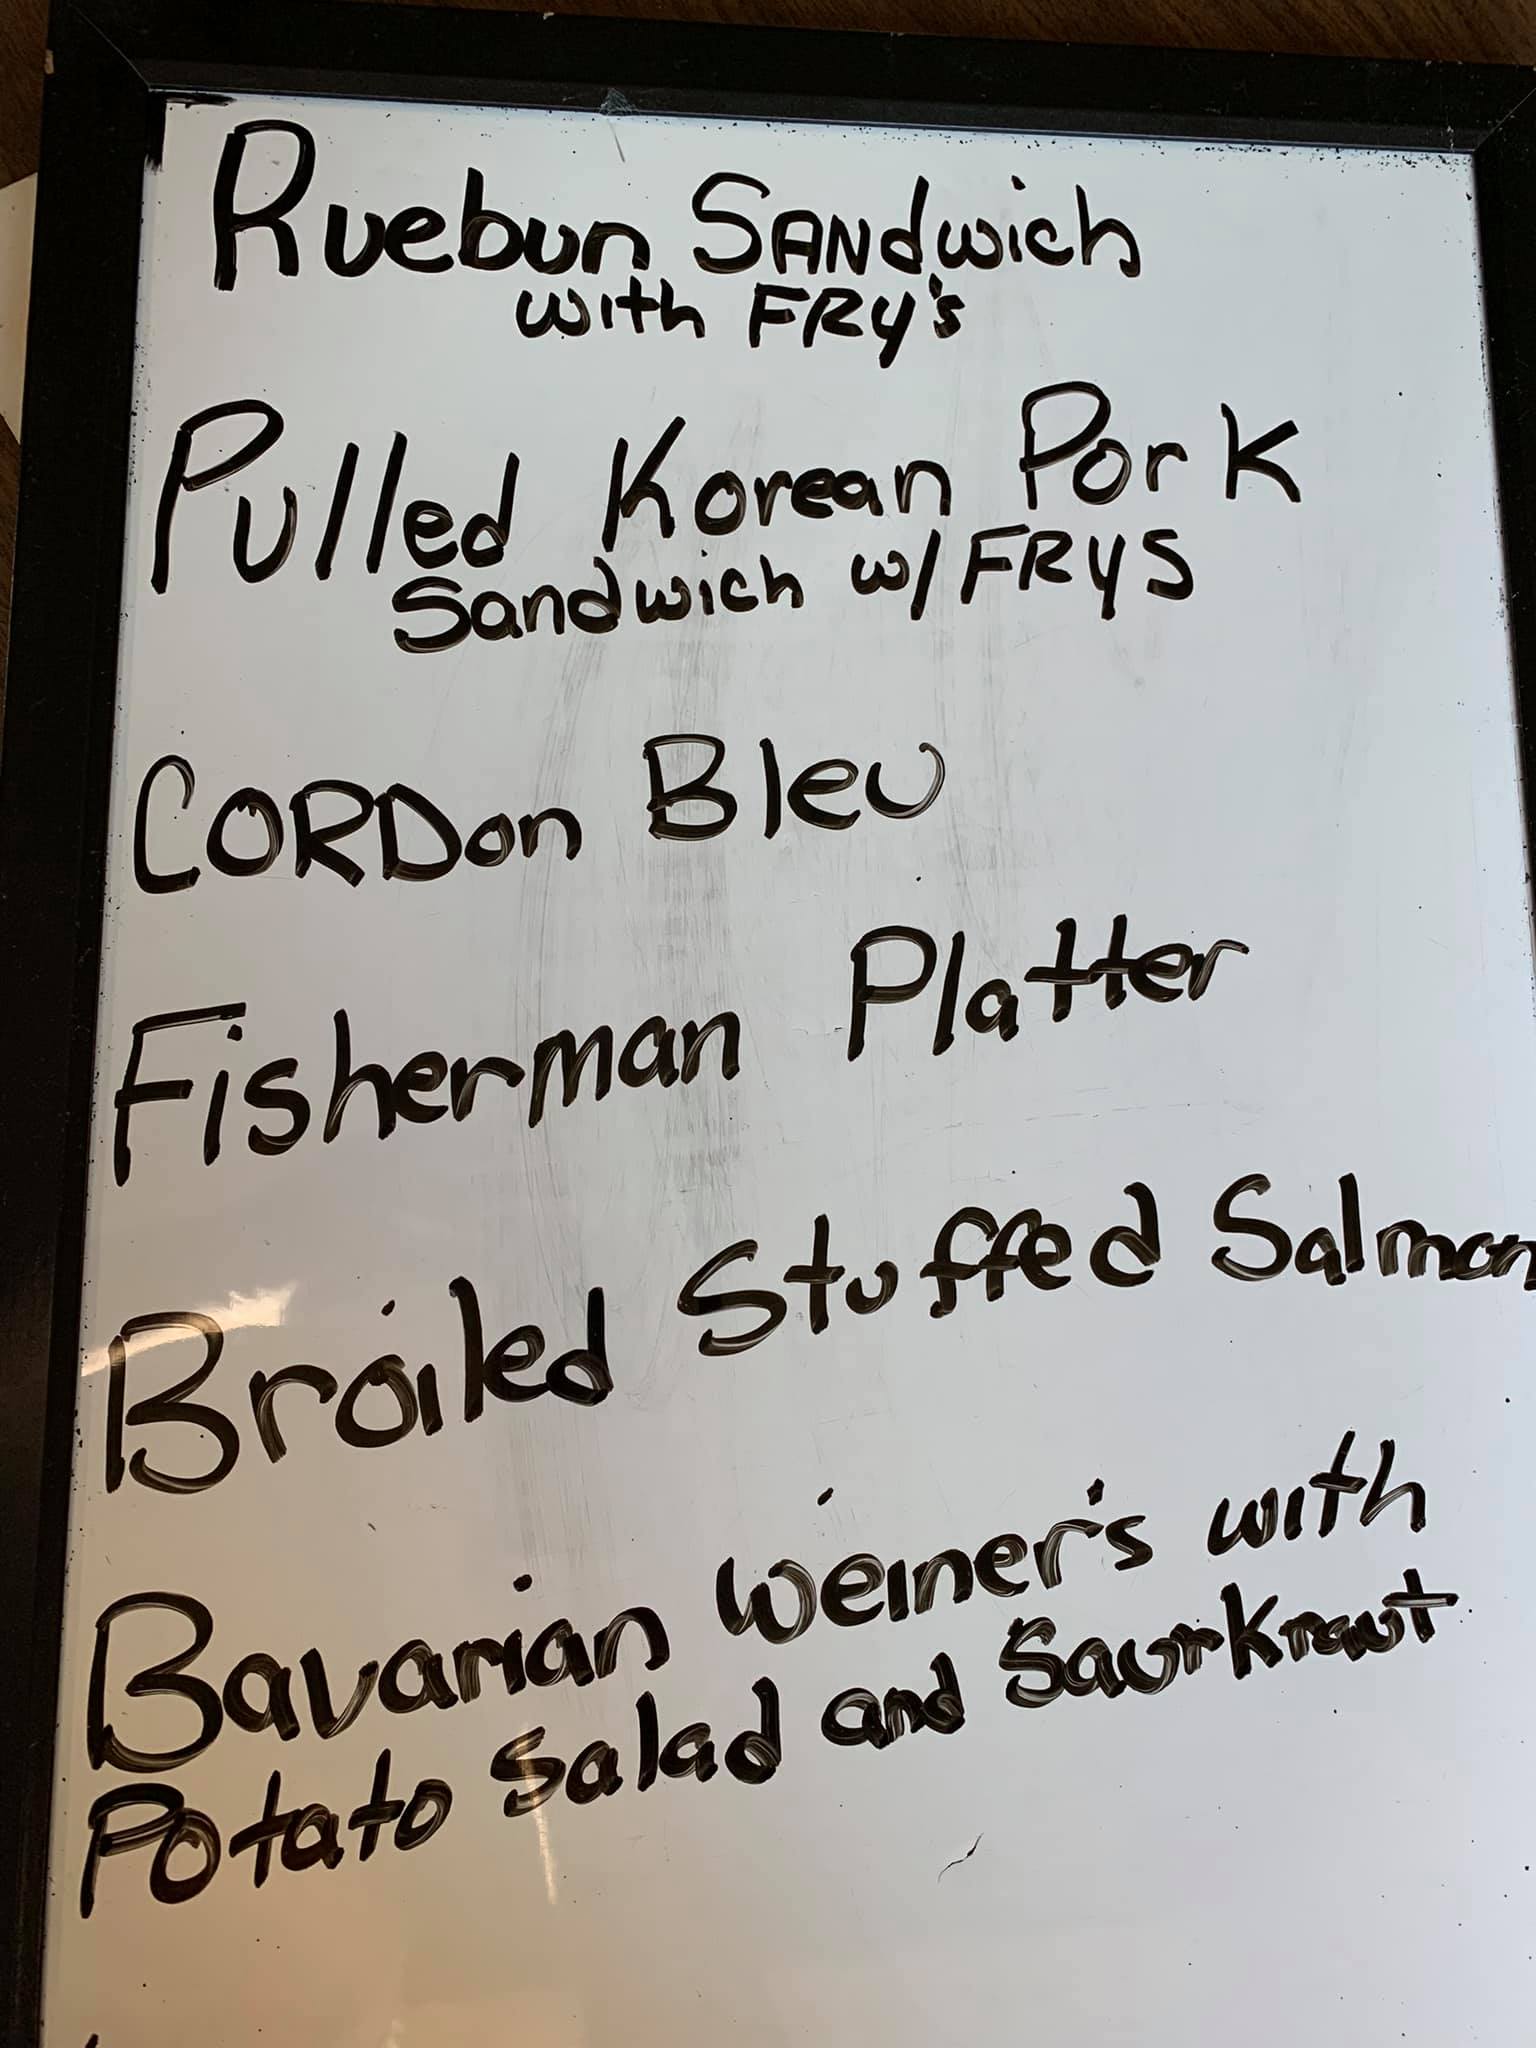 Ruebun SANdwich
with FRY's
Pulled Korean Pork
Sandwich w/FRYS
CORDon Bleu
Fisherman Platter
Broiled Stuffed Salmon
Bavarian Weiner's with
Potato Salad and SaurKraut